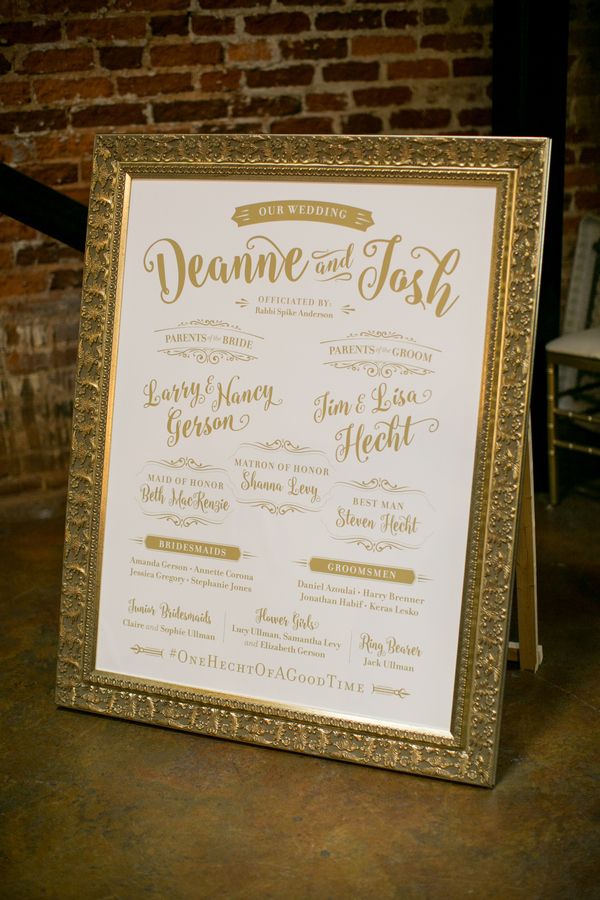 OUR WEDDING
Deanne and Josh
OFFICIATED BY:
Rabbi Spike Anderson
PARENTS of the BRIDE
Larry & Nancy
Gerson
PARENTS of the GROOM
Jim & Lisa
Hecht
MAID OF HONOR
Beth MacKenzie
MATRON OF HONOR
Shanna Levy
BEST MAN
Steven Hecht
BRIDESMAIDS
Amanda Gerson • Annette Corona
Jessica Gregory • Stephanie Jones
GROOMSMEN
Daniel Azoulai • Harry Brenner
Jonathan Habif • Keras Lesko
Junior Bridesmaids
Claire and Sophie Ullman
Flower Girls
Lucy Ullman, Samantha Levy
and Elizabeth Gerson
Ring Bearer
Jack Ullman
#OneHechtOfAGoodTime